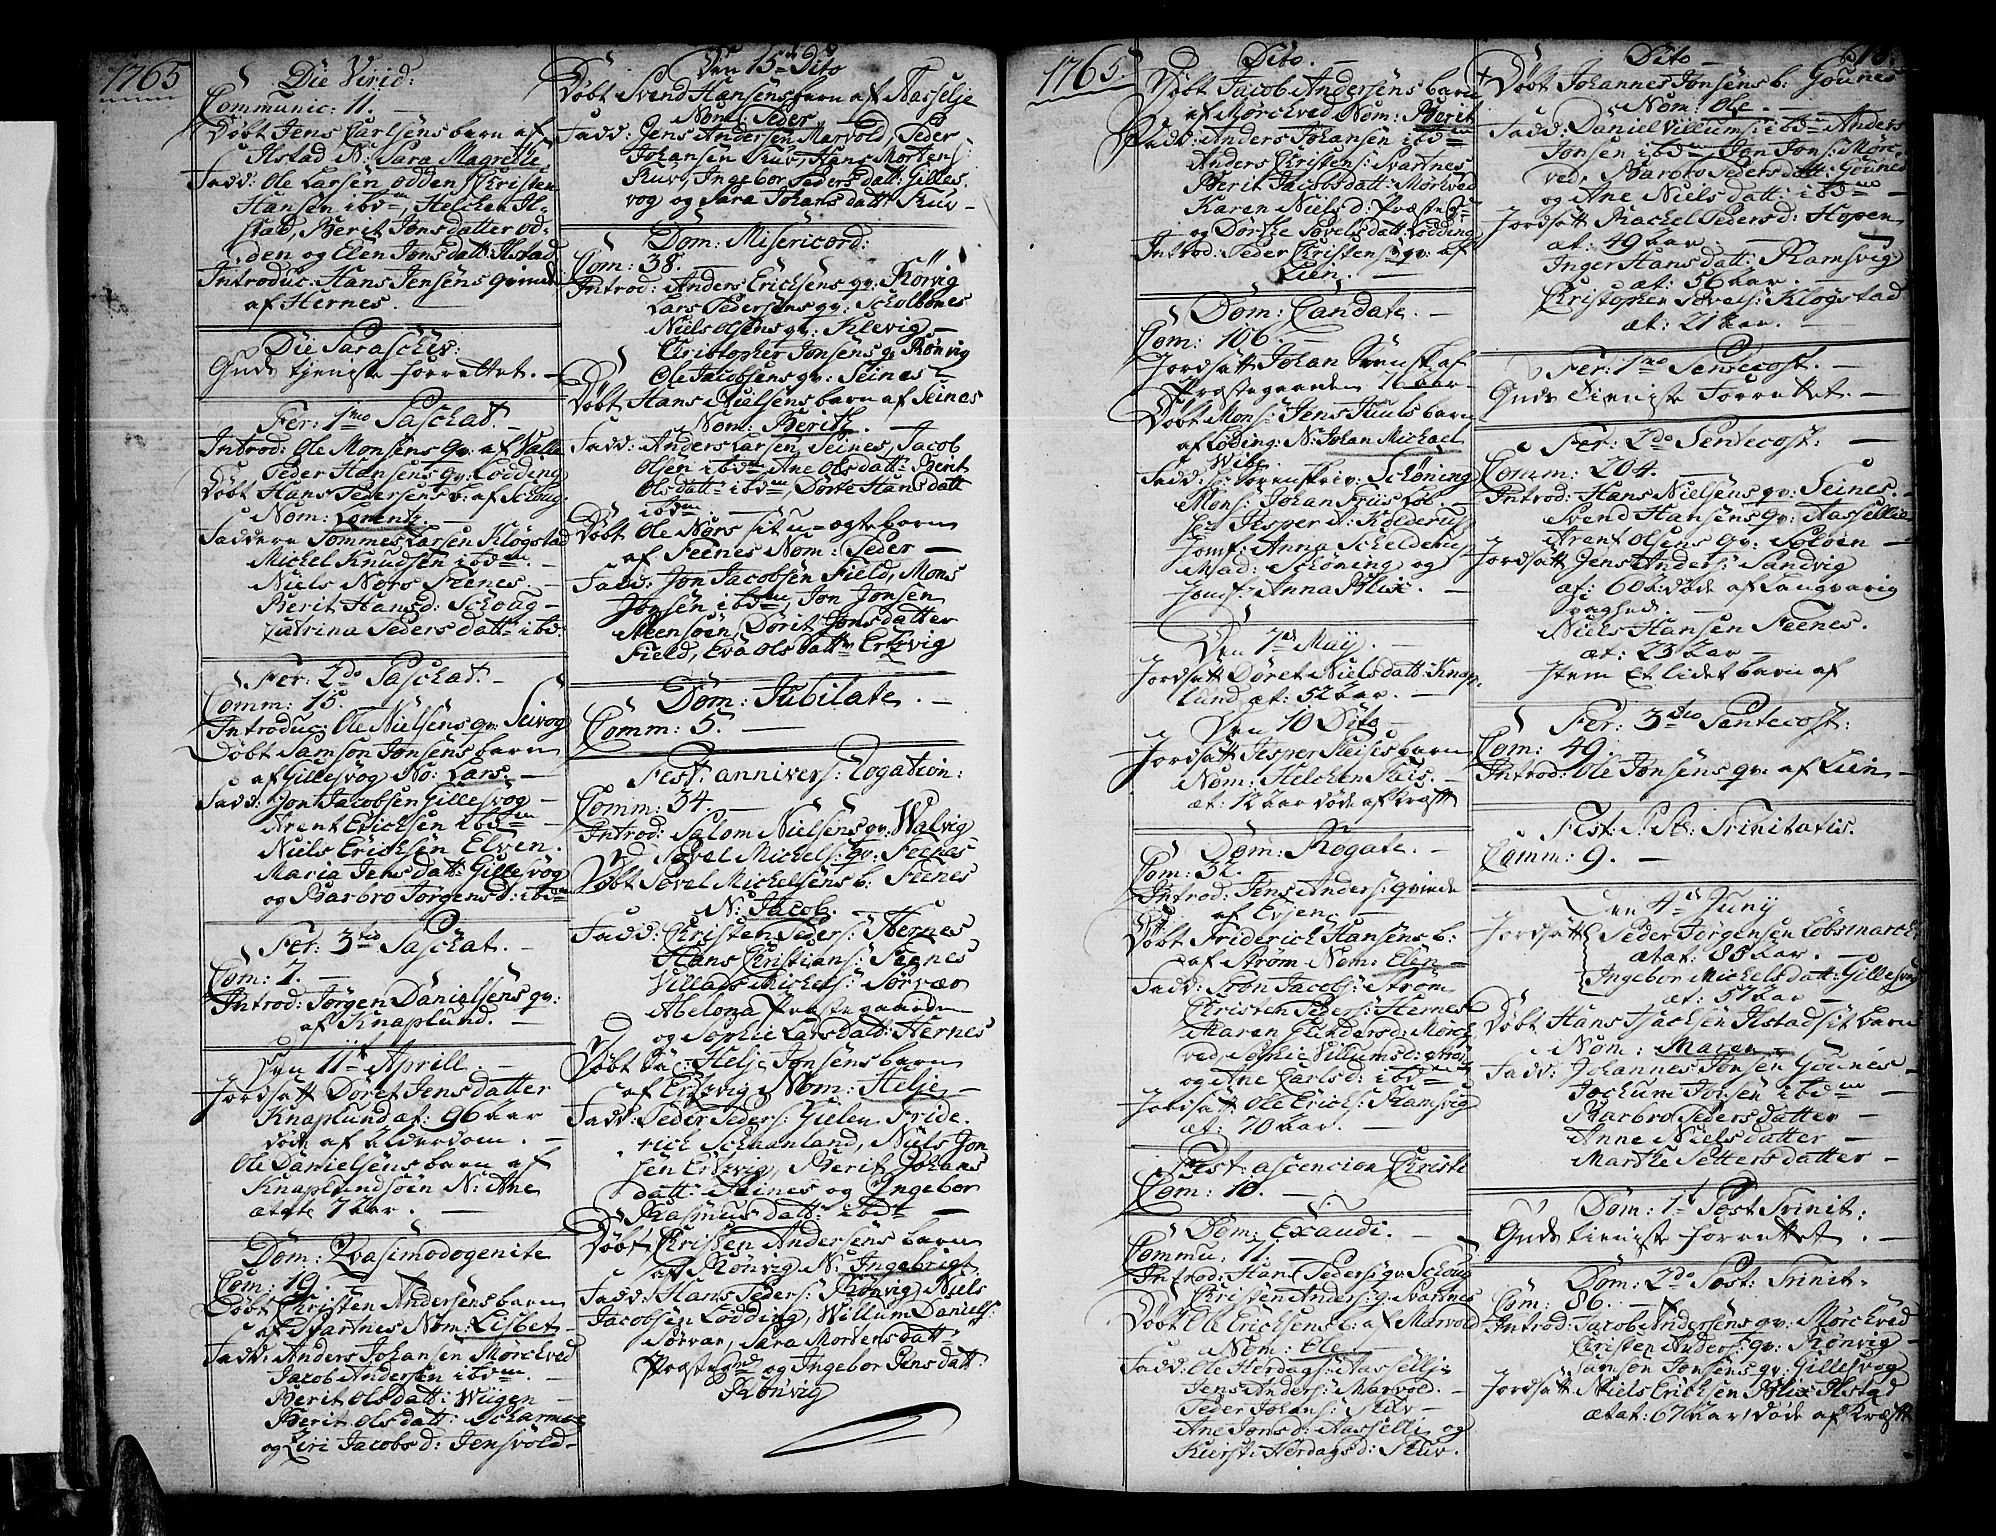 1765
Die Virid:
Communic: 11. —
Døbt Jens Carlsens barn af
Ilstad N: Sara Magrethe
Fadd: Ole Larsen Odden, Christen
Hansen ibdm, Helchen Il-
stad, Berit Jonsdatter Od-
den og Elen Jonsdatt: Ilstad
Introduc: Hans Jensens qvinde
af Hernes.
Die Paraschev:
Guds tjeniste forrettet. —
Fer: 1mo Paschat. —
Introd: Ole Monsens qv: af Valle
Peder Hansens qv: Lødding
Døbt Hans Pedersens b: af Schoug:
Nom: Lorentz. —
Faddere Tommes Larsen Kløgstad
Michel Knudsen ibdm —
Niels Nors Feenes. —
Berit Hansd: Schoug —
Catrina Peders datt: ibd:
Fer: 2do Paschat. —
Comm: 15.
Introduc: Ole Nielsens qv: Seivog
Døbt Samson Jonsens barn
af Gillesvog No: Lars. —
Fadd: Jon Jacobsen Gillesvog —
Arent Erichsen ibdm
Niels Erichsen Elven.
Maria Jensdatt: Gillesvog
og Barbro Jørgensd: ibdm
Fer: 3tio Paschat. —
Com: 7. —
Introd: Jørgen Danielsens qv:
af Knaplund. —
Den 11te Aprill. —
Jordsatt Døret Jensdatter
Knaplund æt: 96 aar
døde af Alderdom. —
Ole Danielsens barn af
Knaplundsøen N: Ane
ætate 7 aar. —
Dom: Qvasimodogenite
Com: 19.
Døbt Christen Andersens barn
af Svartnes Nom: Lisbet —
Fadd: Anders Johansen Mørchved
Jacob Andersen ibdm —
Berit Olsdatt: Wiigen —
Berit Olsdatt:
og Siri Jacobsd: Jensvold —
Den 15de Dito
Døbt Svend Hansens barn af Aasselje
Nom: Peder
Fadd: Jens Andersen Marvold, Peder
Johansen Skuv, Hans Mortens:
Skuv, Ingebor Pedersdatt: Gilles-
vog og Sara Johansdatt: Skuv —
Dom: Misericord:
Com: 38. —
Introd: Anders Erichsens qv: Rørvig
Lars Pedersens qv: Scholbones
Niels Olsens qv: Klevig —
Christopher Jonsens q: Rønvig
Ole Jacobsens qv: Seines —
Døbt Hans Nielsens barn af Seines
Nom: Berith. —
Fadd: Anders Larsen, Seines, Jacob
Olsen ibdm Ane Olsdatt: Berit
Olsdatt: ibdm, Dørte Hansdatt
ibdm. —
Døbt Ole Nors sit u-ægte barn
af Feenes Nom: Peder —
Fadd: Jon Jacobsen Field, Mons
Jonsen ibdm, Jon Jonsen
Steensøen, Dorit Jonsdatter
Field, Eva Olsdattr Ertzvig
Dom: Jubilate. —
Comm: 5. —
Fest: annivers: Rogation:
Comm: 34. —
Introd: Salom Nielsens qv: Walvig
Povel Michels: qv: Feenes
Døbt Povel Michelsens b: Feenes
N: Jacob. —
Fadd: Christen Peders: Hernes
Hans Christians: Feenes
Villads Michels: Sørvær
Abelona Præstegaarden
og Sophie Larsdatt: Hernes
Døbt Sa: Helje Jonsens barn
af Ertzvig Nom: Helje —
Fadd: Peder Peders: Gielen, Fride-
rich Schaanland, Niels Jon
sen Ertzvig, Berit Johans
datt: Steines og Ingebor
Rasmusdatt: ibdm —
Døbt Christen Andersens barn
af Rønvig N: Ingebrigt. —
Fadd: Hans Peders: Rønvig, Niels
Jacobsen Lødding, Willum Daniels:
Sørvær, Sara Mortensdatt:
Præstegrd og Ingebor Jensdatt:
Rønvig
1765.
Dito. —
Døbt Jacob Andersens barn
af Mørchved Nom: Berit
Fadd: Anders Johansen ibdm
Anders Christens: Svartnes
Berit Jacobsdatt: Mørkved
Karen Nielsd: Præsteg:
og Dorthe Povelsdatt: Lødding
Introd: Peder Christens: qv: af
Lien. —
Dom: Cantate. —
Com: 106. —
Jordsatt Johan Svensk af
Præstegaarden 76 aar —
Døbt Mons: Jens Juuls barn
af Løding: N: Johan Michael
Wibe.
Fadd: Hr: Sorenskriv: Schøning
Mons: Johan Friis
Jesper A: Kolderup
Jomf: Anna Schelderup
Mad: Schøning og
Jomf: Anna Blix. —
Den 7de Maij. —
Jordsatt Døret Nielsdatt: Knap-
lund æt: 52 aar. —
Den 10 Dito —
Jordsatt Jesper Fleises barn
Nom: Helchen Fleis. —
æt: 12 aar døde af bræst
Dom: Rogate. —
Com: 32.
Introd: Jens Anders: qvinde
af Evjen. —
Døbt Friderich Hansens b:
af Strøm Nom: Elen —
Fadd: Tron Jacobs: Strøm
Christen Peders: Hernes
Maren Enevoldsd: Mørch-
ved, Sophie Villumsd:
og Ane Carlsd: ibdm
Jordsatt Ole Erichs: Ramsvig
æt: 70 aar. —
Fest: ascencion Christi
Com: 10. —
Dom: Exaudi. —
Commu: 11. —
Introd: Hans Peders: qv: Schoug
Christen Anders: q: Svartnes
Døbt Ole Erichsens b: af Marvold
Nom: Ole. —
Fadd: Ole Herdags: Aasselli
Jens Anders: Marvold. —
Peder Johans: Skuv —
Ane Jonsd: Aasselli og
Kierst: Herdagsd: Skuv.
Dito —
Døbt Johannes Jonsens b: Gounes
Nom: Ole. —
Fadd: Daniel Villums: ibdm Anders
Jonsen ibdm Jon Jons: Mørc
ved, Barbro Pedersdatt: Gounes
og Ane Nielsdatt: ibdm —
Jordsatt Rachel Pedersd: Hopen
æt: 49 aar —
Inger Hansdatt: Ramsvig
æt: 56 aar. —
Christopher Povels: Kløgstad
æt: 21 aar. —
Fer: 1mo Pentecost. —
Guds Tieniste Forrettet. —
Fer: 2do Pentecost: —
Comm: 204. —
Introd: Hans Nielsens qv: Seines. —
Svend Hansens qv: Aassellie
Arent Olsens qv: Soløen —
Jordsatt Jens Anders: Sandvig
æt: 60 a: døde af Langvarig
svaghed. —
Niels Hansen Feenes.
æt: 23 aar —
Item Et lidet barn af
Fer: 3tio Pentecost:
Com: 49. —
Introd: Ole Jonsens qv: af Lien —
Fest: S: St: Trinitatis.
Comm: 9. —
Den 4de Junij
Jordsatt Peder Jørgensen Løbsmarch:
ætat: 88 aar. —
Ingebor Michelsdatt: Gillesvog
æt: 57 aar —
Døbt Hans Isachsen Ilstads it barn
Nom: Maren —
Fadd: Johannes Jonsen Gounes —
Jochum Jonsen ibdm
Barbro Pedersdatter —
Anne Nielsdatter —
Marthe Pettersdatter —
Dom: 1st Post Trinit:
Guds tieniste forrettet. —
Dom: 2do Post: Trinit.
Com: 86. —
Introd: Jacob Andersens qv: Mørchved
Christen Anders: qv: Rønvig —
Samson Jonsens qv: Gillesvog
Jordsatt Niels Erichsen Blix Ilstad
ætat: 67 aar, døde af bræst